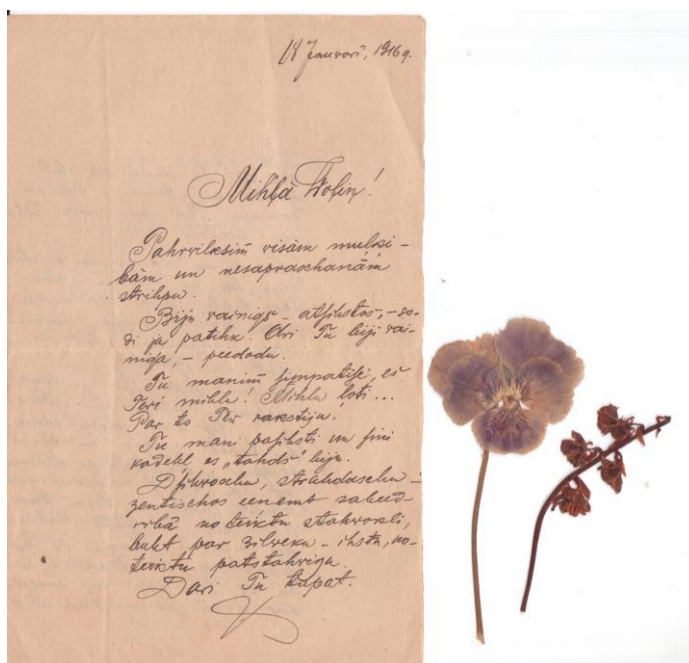 18 Janvarī, 1916 g.
Mihļā Wolin!
Pahrvilksim visām mulķi-
bām un nesaprašchanām
strihpu.
Biju vainigs – atsihstos, – so-
di ja patihk. Ari Tu biji vai-
niga, – peedodu.
Tu manim simpatisē, es
Tevi mihlu! Mihlu loti...
Par to Tev rakstiju!
Tu mani pasihsti un sini
kadehl es „tahds" biju.
Dsihwochu, strahdaschu
zentischos eenemt sabeed-
ribā noteiktu stahwokli,
buht par zilweku – ihstu, no-
teiktu patstahvigu.
Dari Tu tapat.